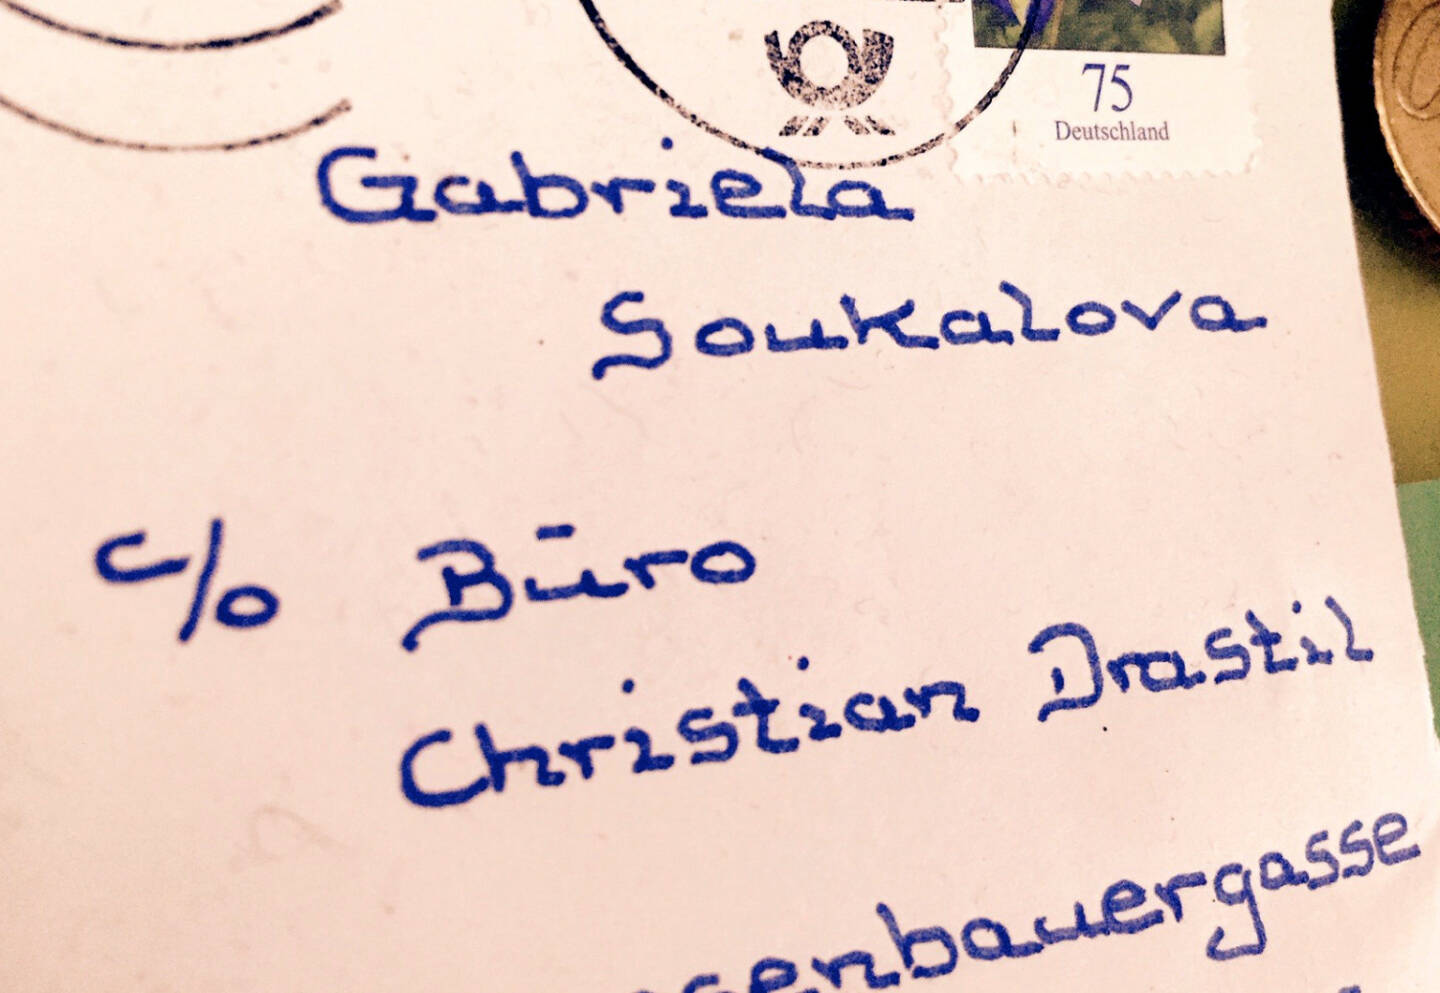 75
Deutschland
Gabriela
Soukalova
c/o Büro
Christian Drastil